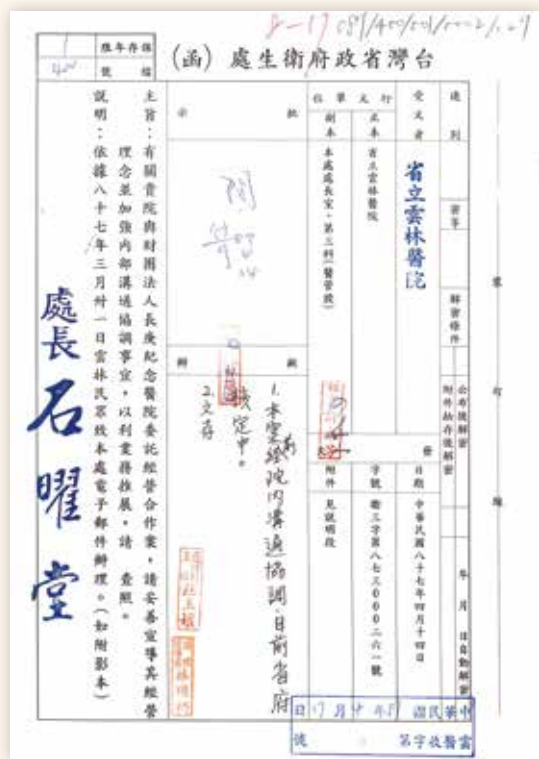 8-17 087/400/501/0002/
保存年限
檔號
台灣省政府衛生處(函)
速別
密等
解密條件
公布後解密
附件抽存後解密
年 月 日自動解密
受文者
省立雲林醫院
行文單位
正本
省立雲林醫院
副本
本處處長室、第三科(醫管股)
發文
日期 中華民國八十七年四月十四日
字號 衛三字第八七三000二六一號
附件 見說明段
批示
閱
擬辦
1. 本案經院內溝通協調,目前省府
核定中。
2. 文存
主旨:有關貴院與財團法人長庚紀念醫院委託經營合作案,請妥善宣導其經營
理念並加強內部溝通協調事宜,以利業務推展,請 查照。
說明:依據八十七年三月卅一日雲林民眾致本處電子郵件辦理。(如附影本)
處長 石曜堂
裝
訂
線
中華民國
年4月17日
雲醫收字第
號